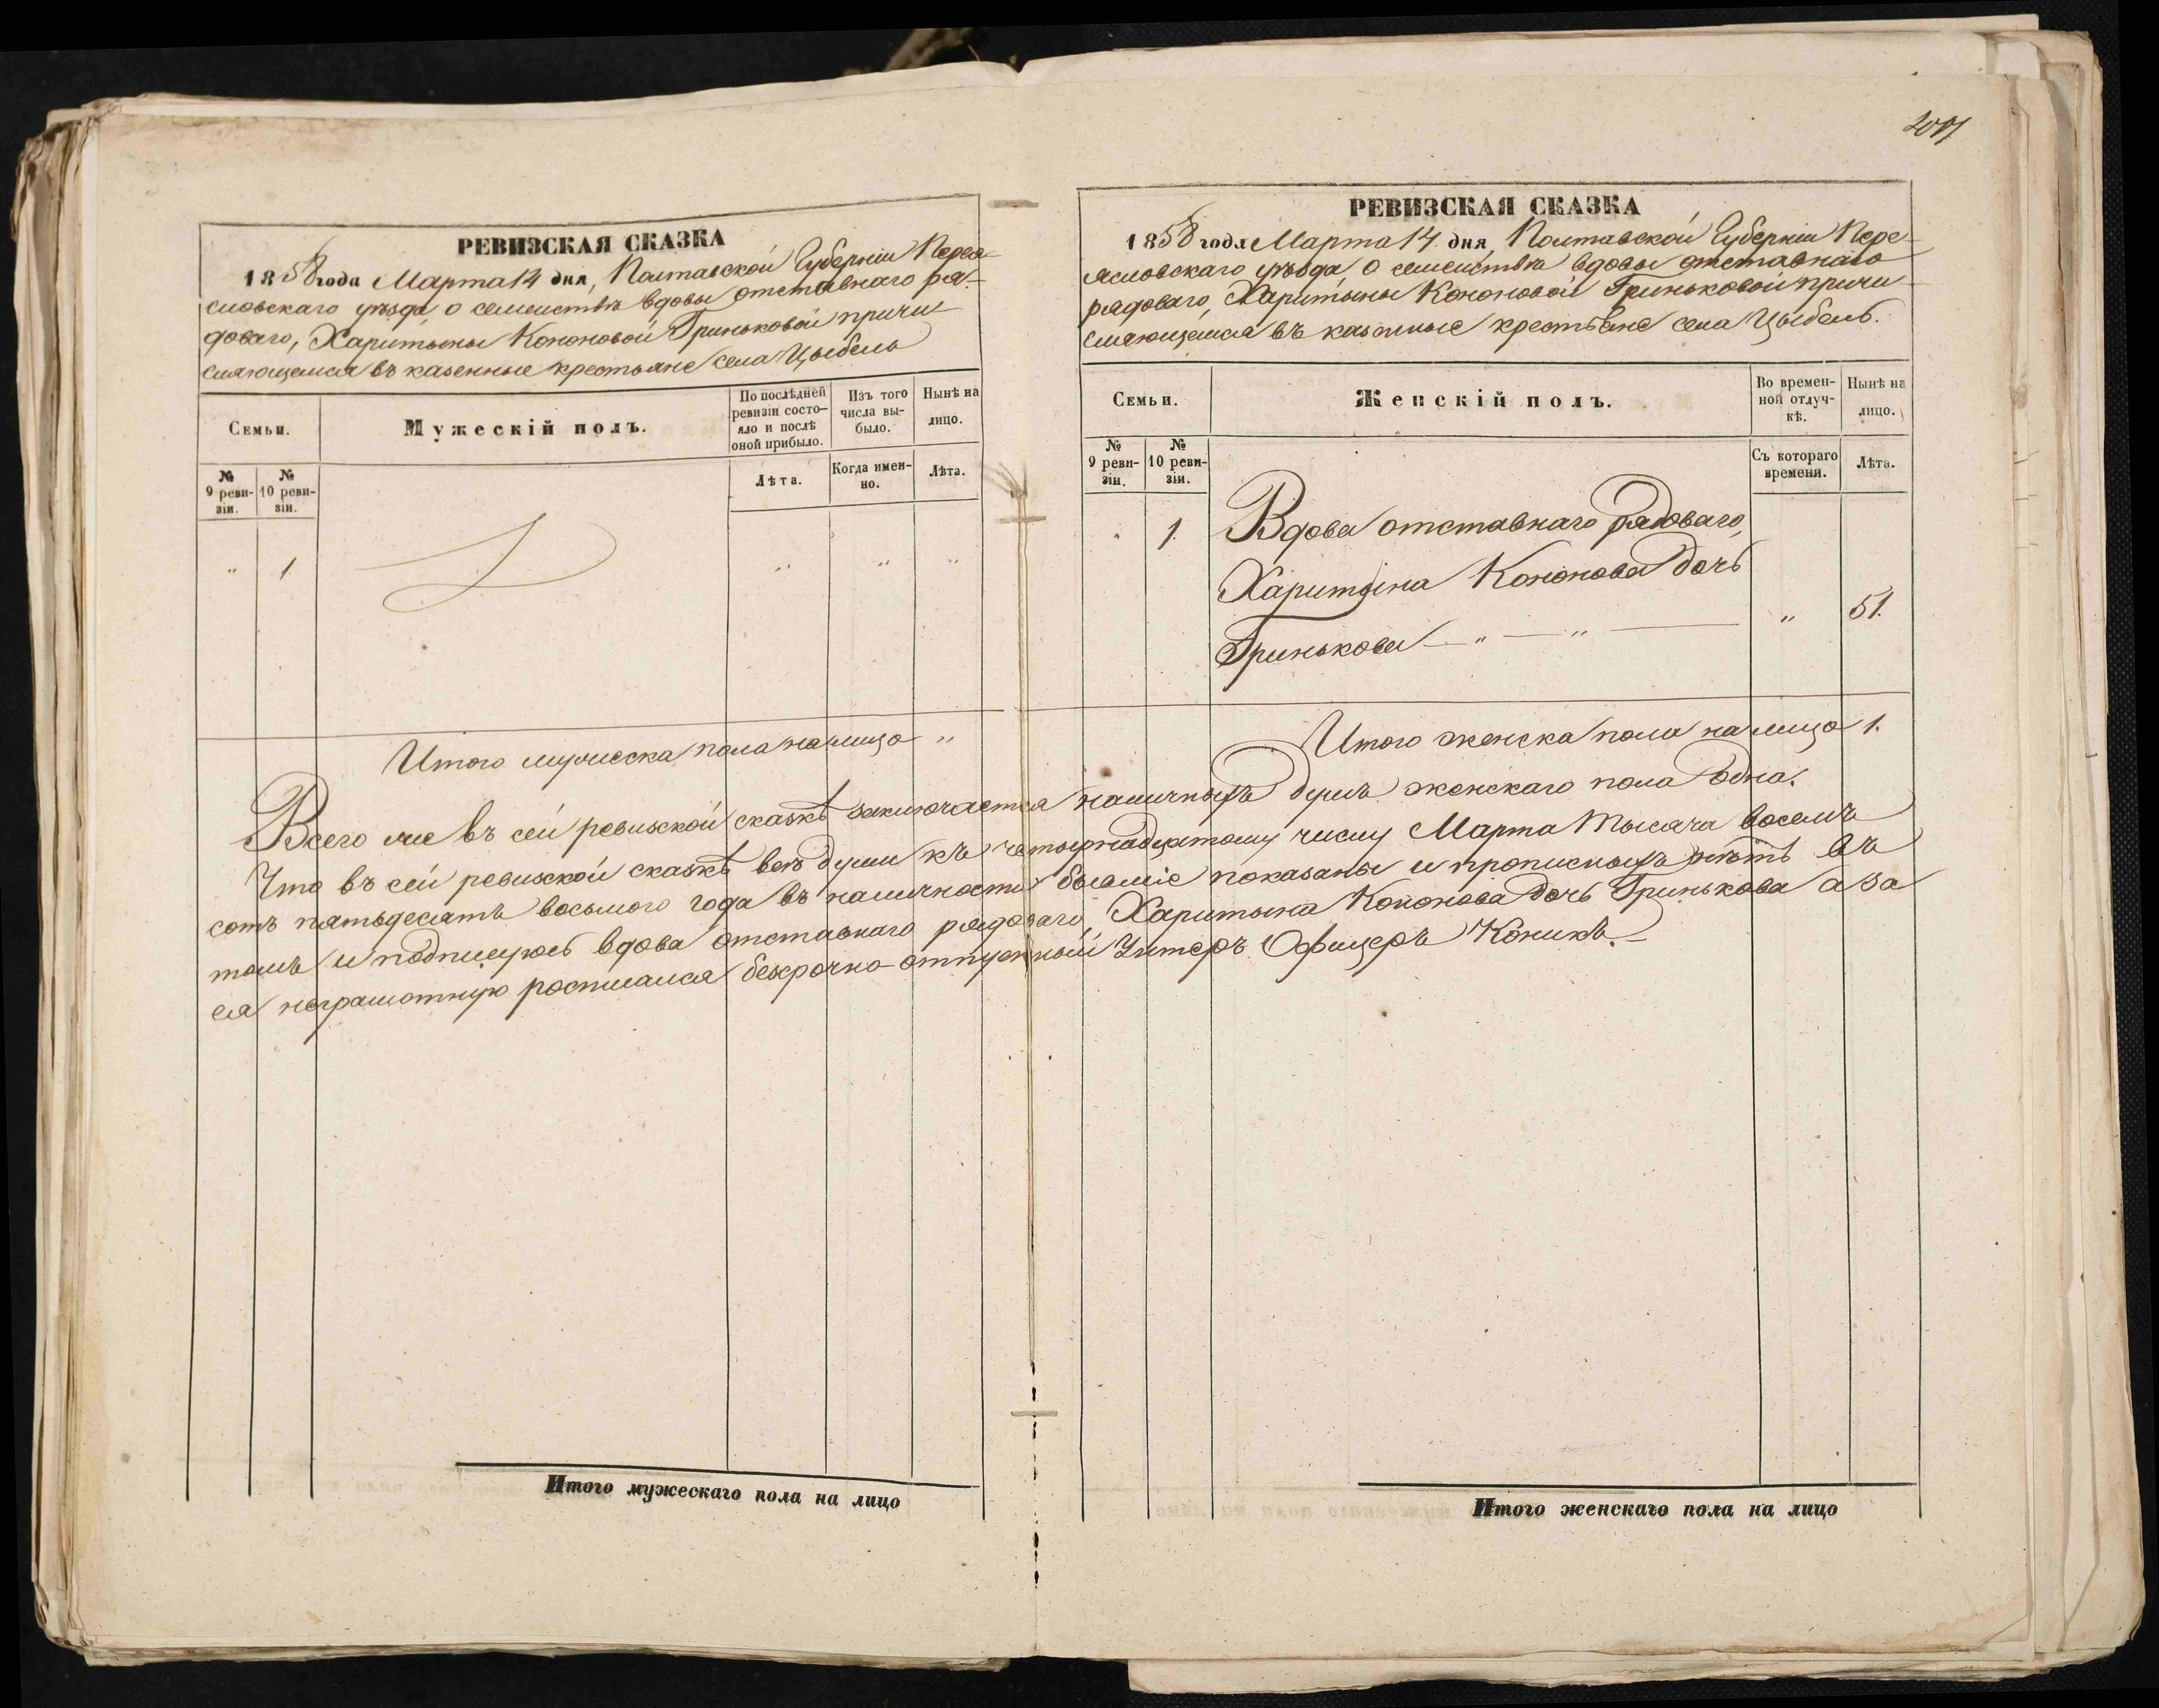 РЕВИЗСКАЯ СКАЗКА
1858 года Марта 14 дня, Полтавской Губерніи Перея-
словскаго уѣзда, о семействѣ вдовы отставнаго ря-
доваго, Харитыны Кононовой Гриньковой причи-
сляющемся въ казенные крестьяне села Цыбель
Семьи.
Мужескій полъ.
По послѣдней ревизіи состо-
яло и послѣ оной прибыло.
Изъ того числа вы-
было.
Нынѣ на лицо.
№ 9 реви-
зіи.
№ 10 реви-
зіи.
Лѣта.
Когда имен-
но.
Лѣта.
„ 1 „ „ „
Итого мужеска пола налицо „
2
РЕВИЗСКАЯ СКАЗКА
1858 года Марта 14 дня, Полтавской Губерніи Пере-
ясловскаго уѣзда, о семействѣ вдовы отставнаго
рядоваго, Харитыны Кононовой Гриньковой причи-
сляющемся въ казенные крестьяне села Цыбель.
Семьи.
Женскій полъ.
Во времен-
ной отлуч-
кѣ.
Нынѣ на лицо.
№ 9 реви-
зіи.
№ 10 реви-
зіи.
Съ котораго времени.
Лѣта.
„ 1. Вдова отставнаго рядоваго,
Харитына Кононова дочь
Гринькова — „ — „ — „ 51.
Итого женска пола налицо 1.
Всего же въ сей ревизской сказкѣ заключается наличныхъ душъ женскаго пола одна.
Что въ сей ревизской сказкѣ всѣ души къ четырнадцатому числу Марта тысяча восемь
сотъ пятьдесятъ восьмого года въ наличности бывшіе показаны и прописныхъ нѣтъ въ
томъ и подпишуюсь вдова отставнаго рядоваго, Харитына Кононова дочь Гринькова а за
ея неграмотную росписался безсрочно-отпускный Унтеръ Офицеръ Коникъ.
Итого мужескаго пола на лицо
Итого женскаго пола на лицо